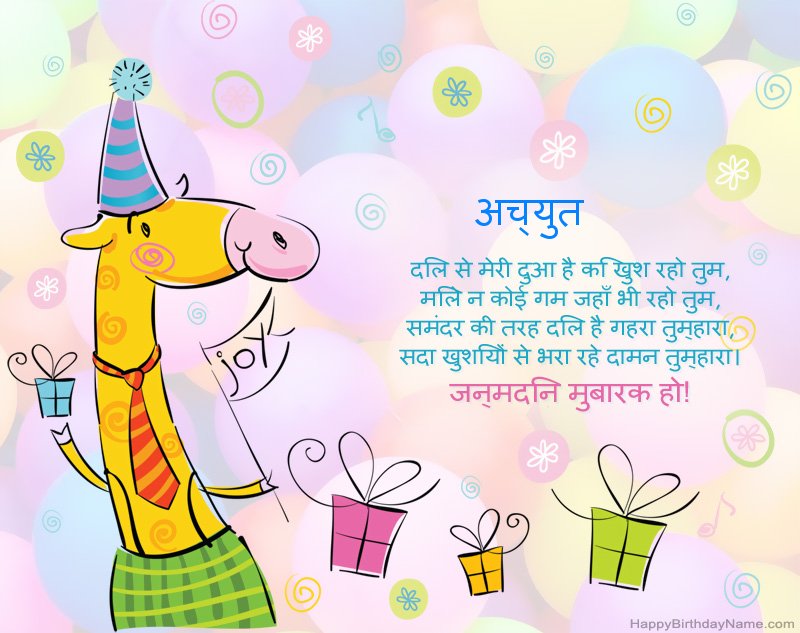 अच्युत
दलि से मेरी दुआ है कि खुश रहो तुम,
मलिे न कोई गम जहाँ भी रहो तुम,
समंदर की तरह दलि है गहरा तुम्हारा,
सदा खुशयिों से भरा रहे दामन तुम्हारा।
जन्मदनि मुबारक हो!
joy
HappyBirthdayName.com